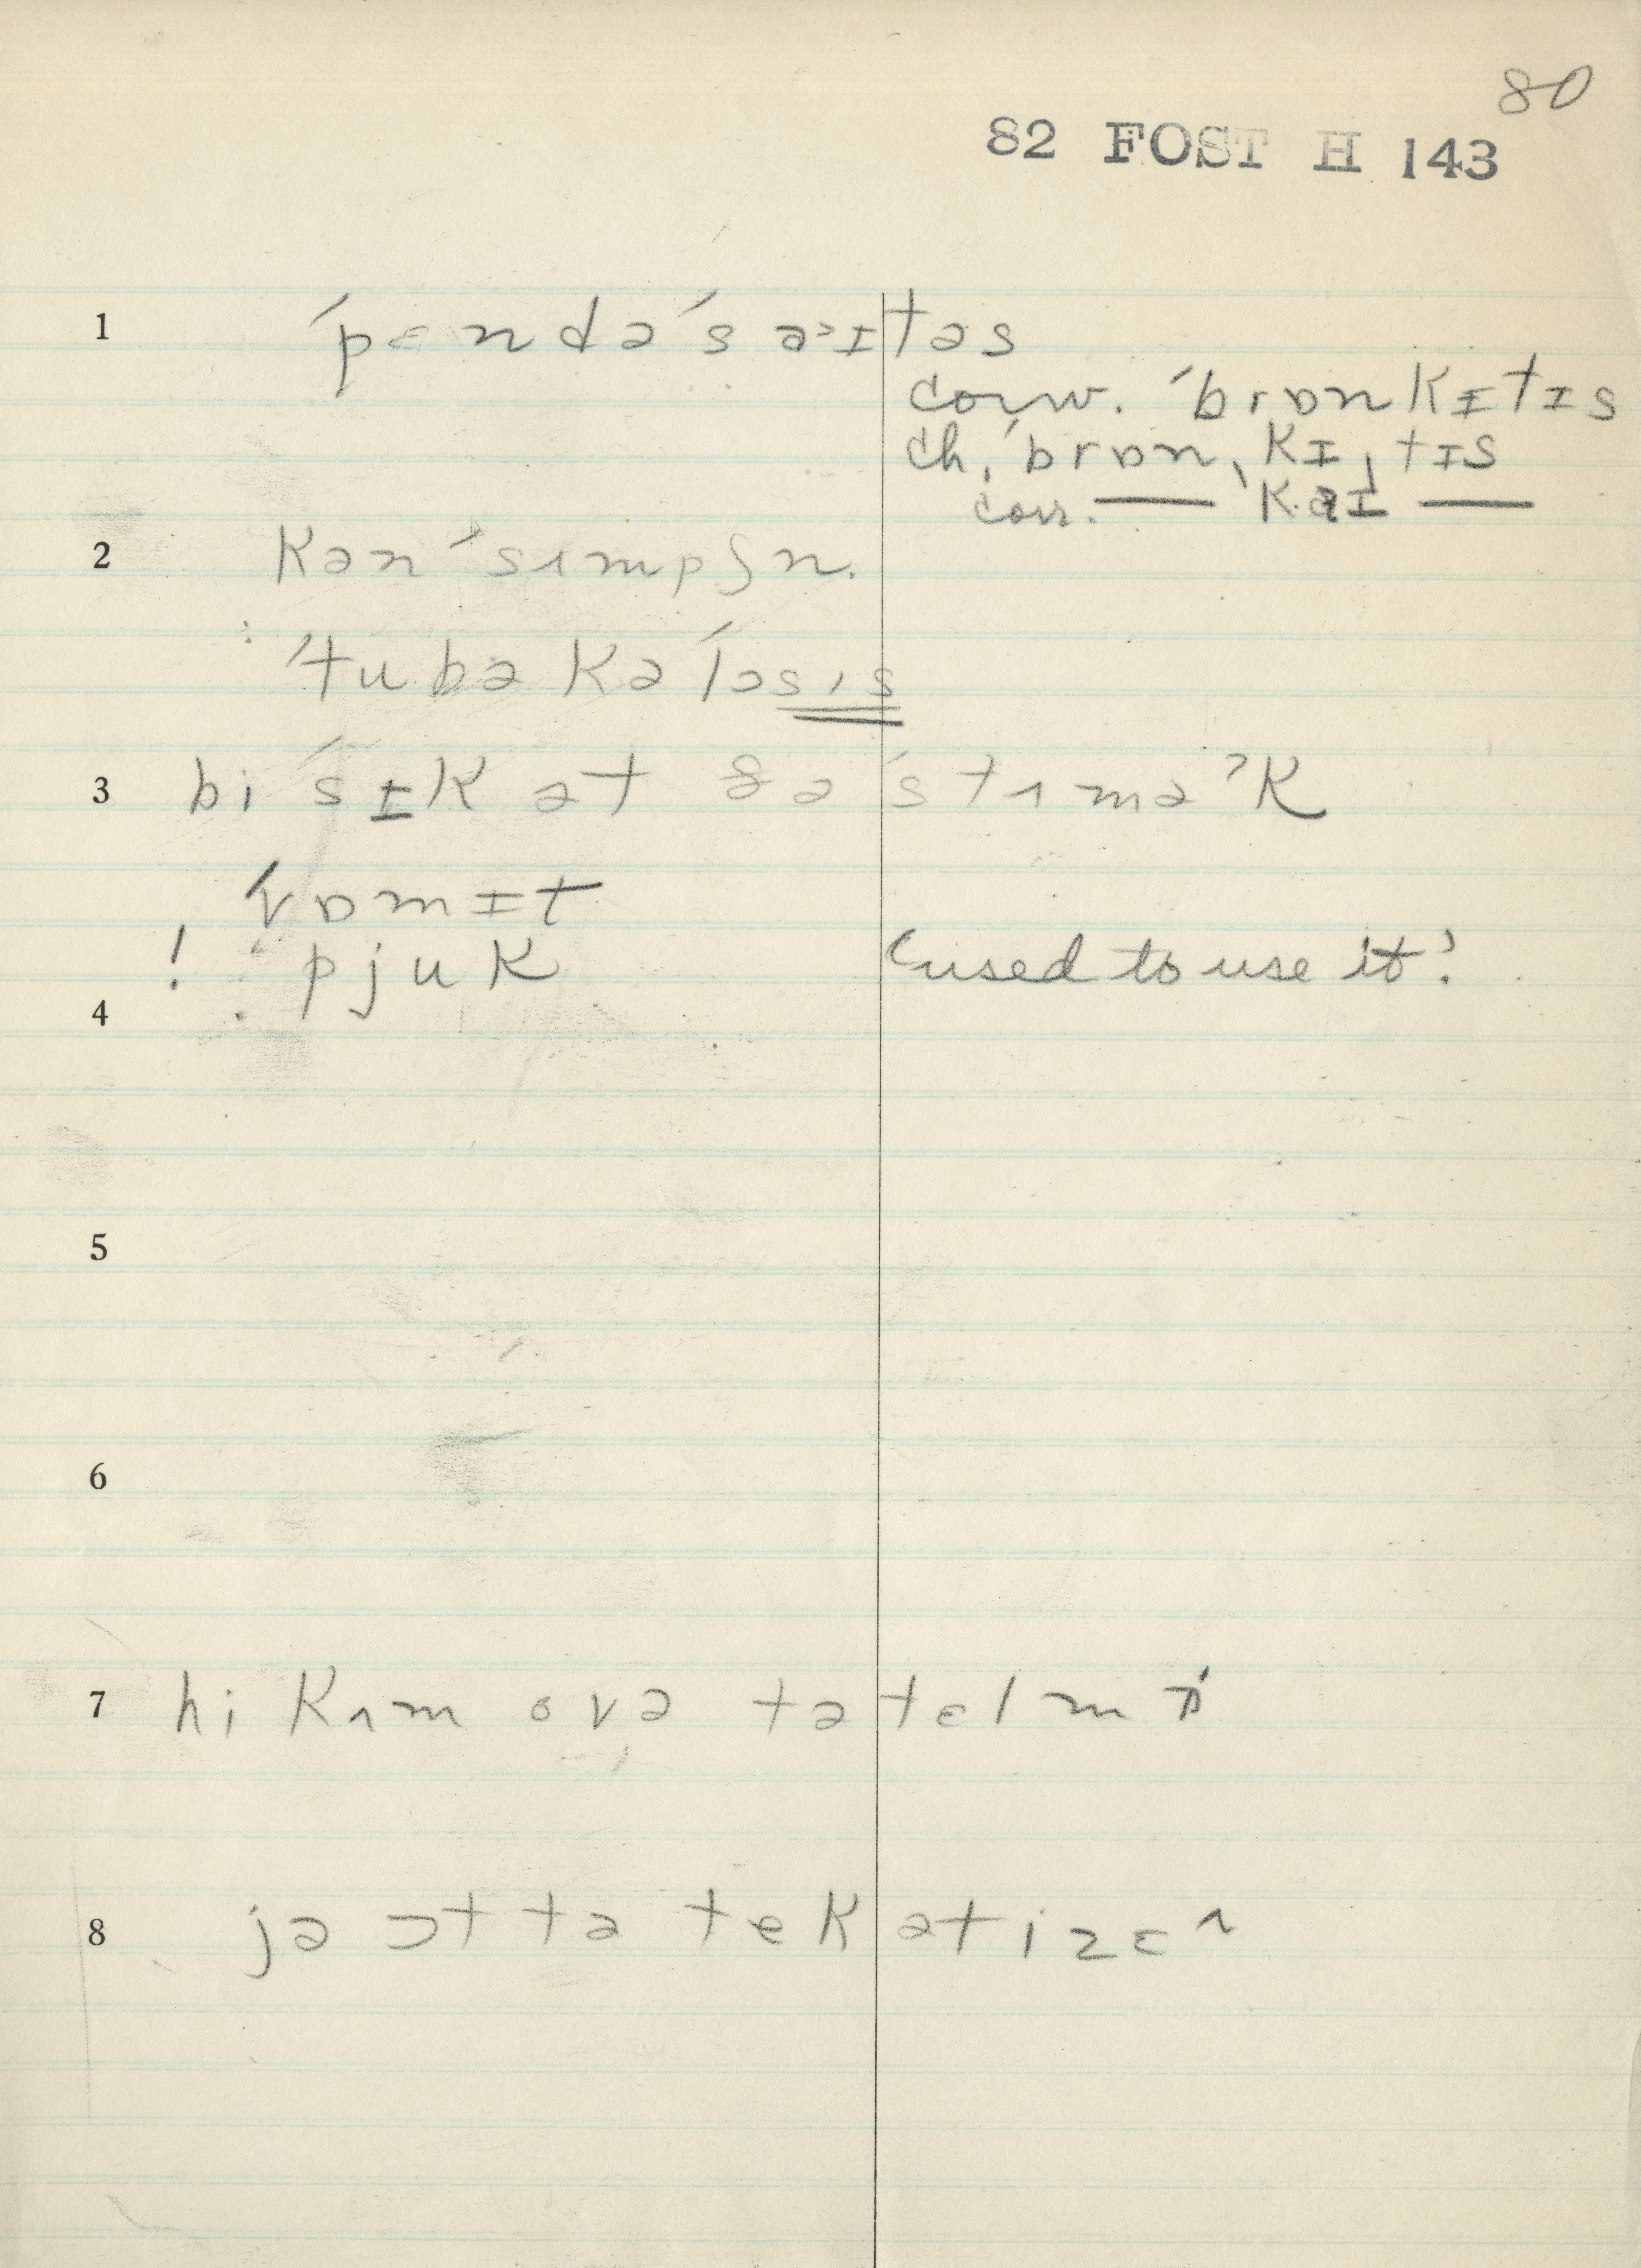 80
82 FOST H 143
1 ˈpɛndəˈsaˑɪtəs
conv. ˈbrɒnkɪtɪs
ch. ˈbrɒnˌkɪˌtɪs
corr. — ˈkaɪ —
2 kənˈsʌmpʃn.
ˈtubəkəˈləsɪs
3 bi ˈsɪk ət ðə ˈstʌməˀk
ˈvɒmɪt
! : pjuk (used to use it!)
4
5
6
7 hi kʌm ovə tə tɛl mi
8 jə ɔt tə tek ət izɛ^